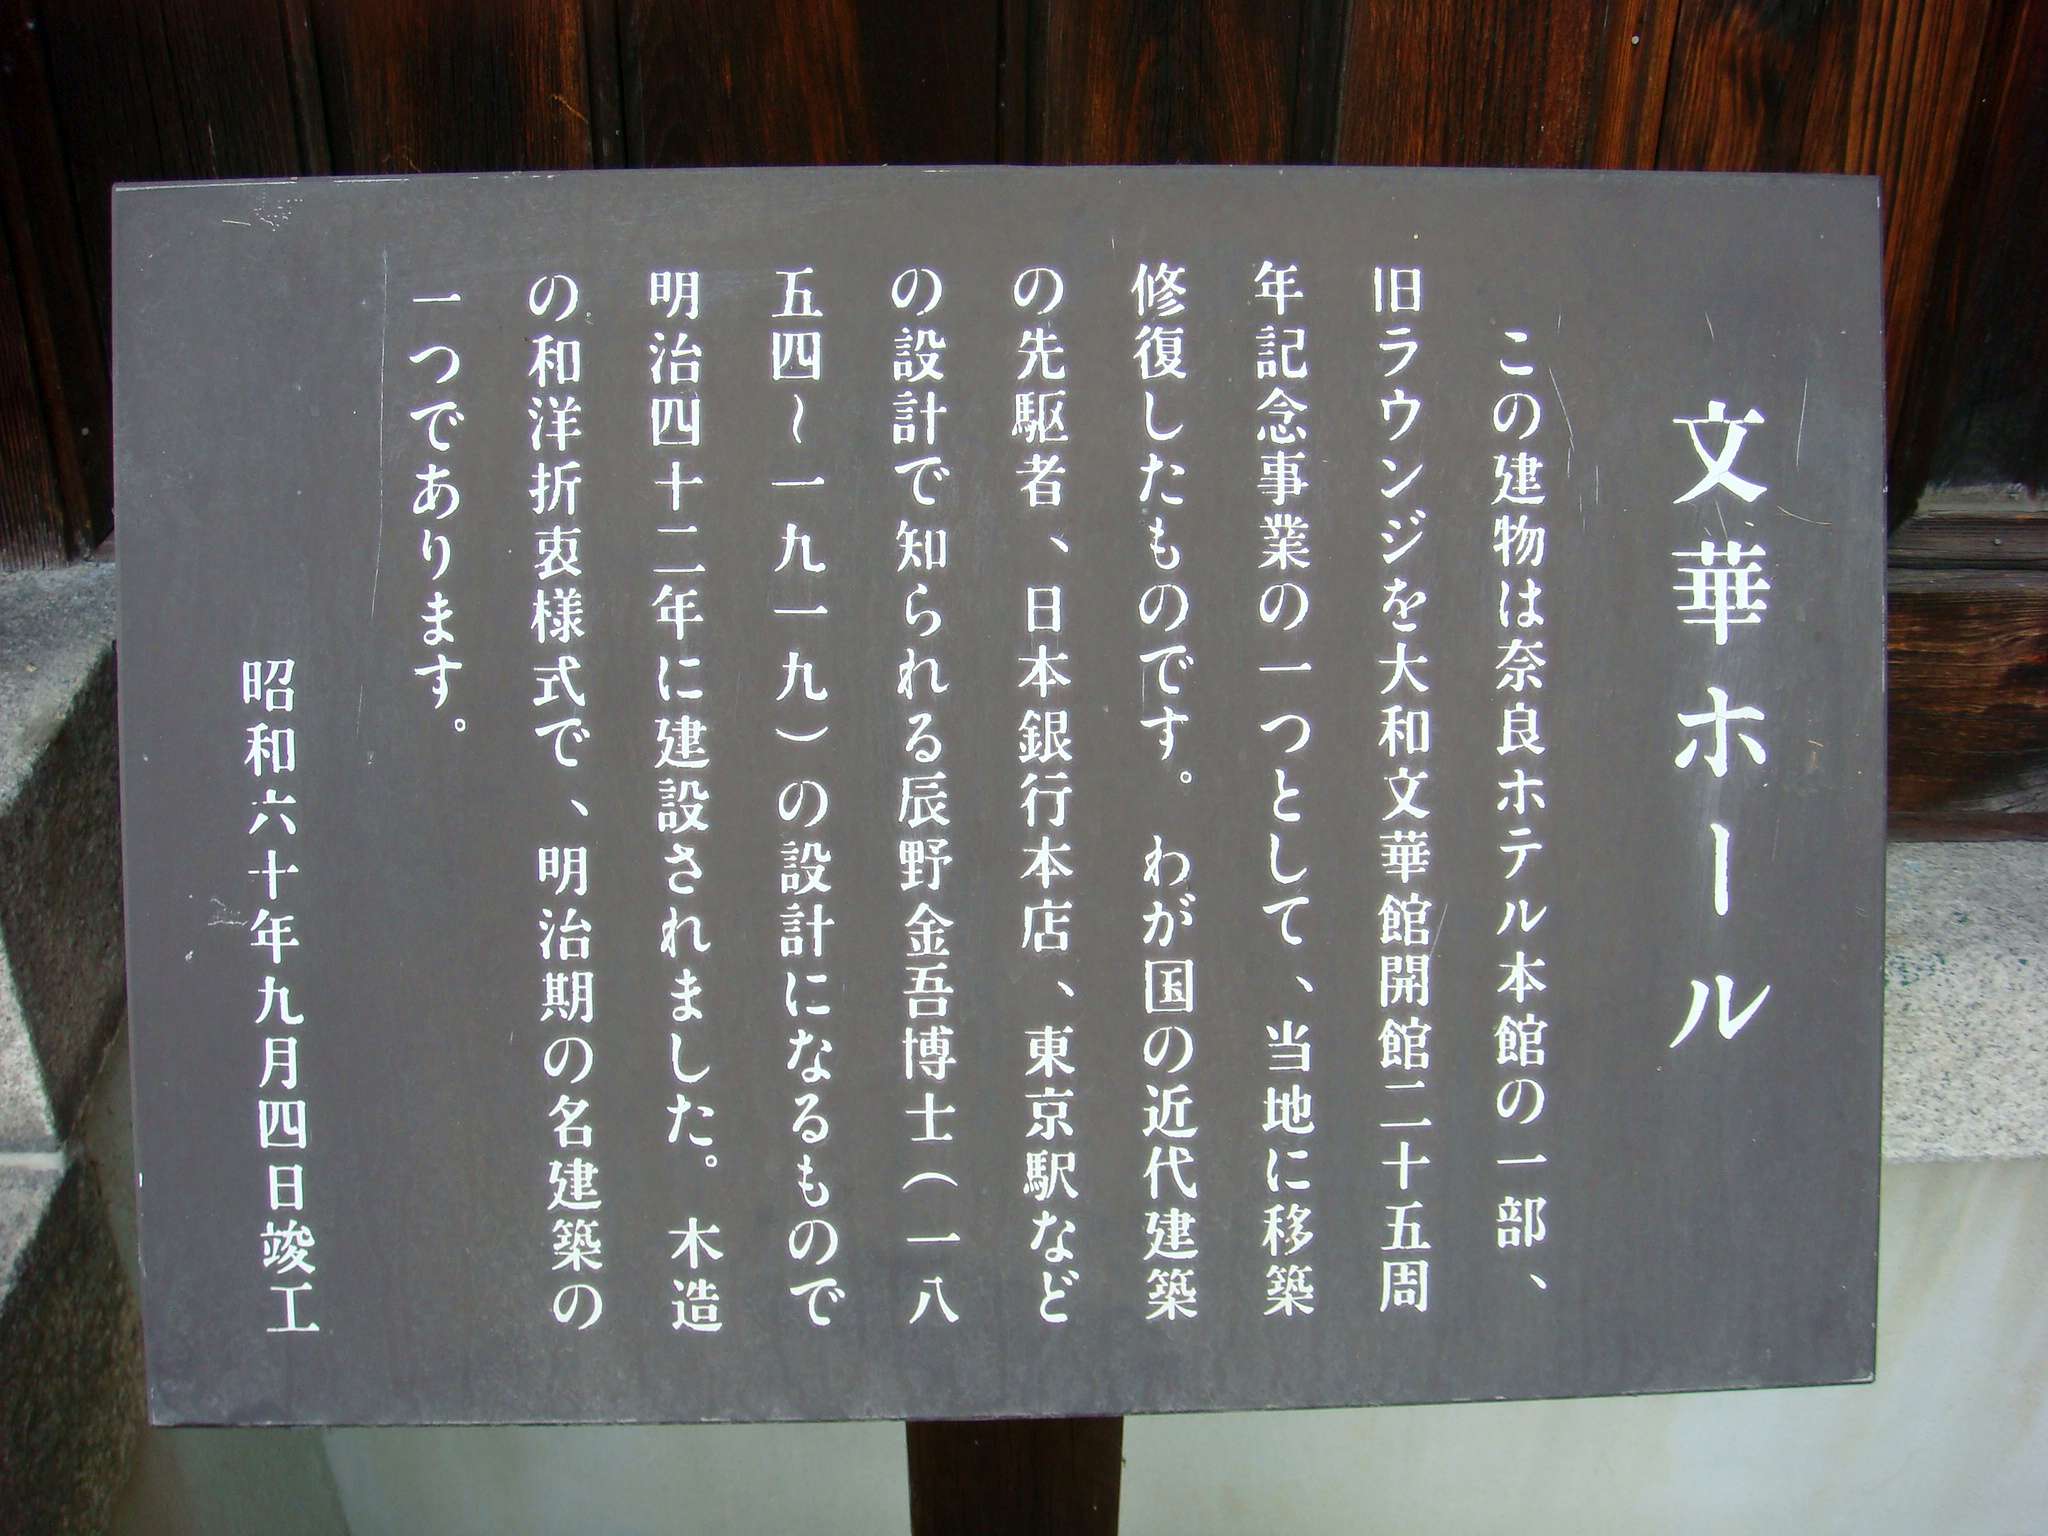 文華ホール
この建物は奈良ホテル本館の一部、
旧ラウンジを大和文華館開館二十五周
年記念事業の一つとして、当地に移築
修復したものです。わが国の近代建築
の先駆者、日本銀行本店、東京駅など
の設計で知られる辰野金吾博士(一八
五四〜一九一九)の設計になるもので
明治四十二年に建設されました。木造
の和洋折衷様式で、明治期の名建築の
一つであります。
昭和六十年九月四日竣工